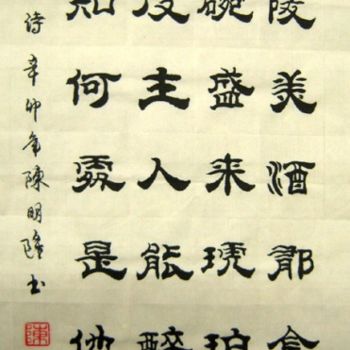 陵美酒郁金
碗盛来琥珀
使主人能醉
知何處是他
詩辛卯年陳明隆书